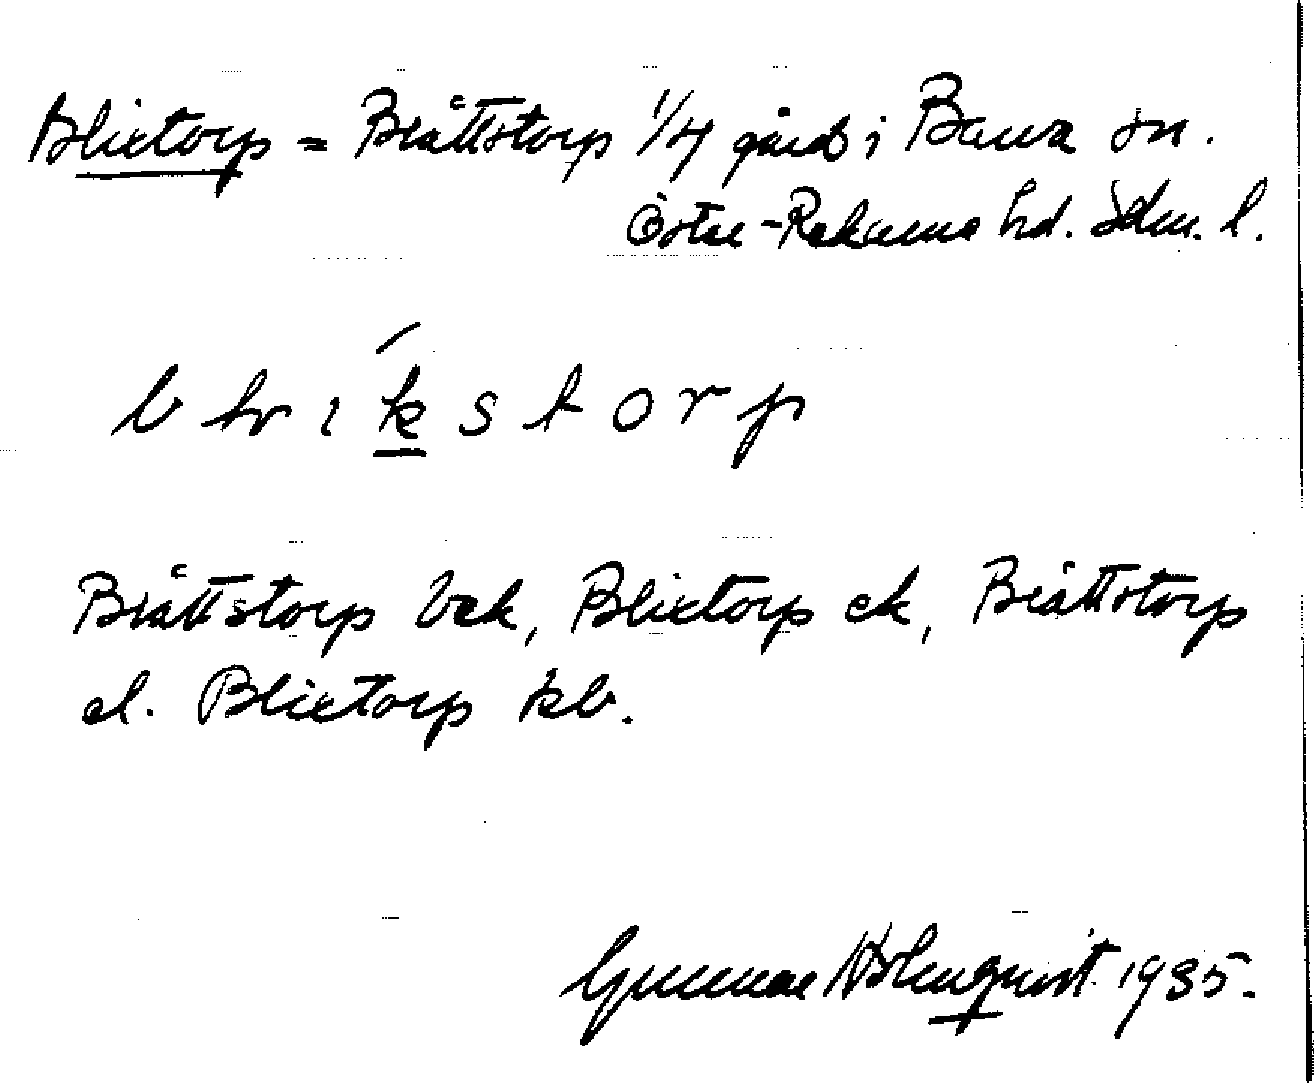 Blixtorp = Bråttstorp 1/4 gård i Barva sn.
Öster-Rekarne hd. Sdm. l.
b l r i k s t o r p
Bråttstorp bek, Blixtorp ek, Bråttstorp
el. Blixtorp kb.
Gunnar Holmquist 1935.